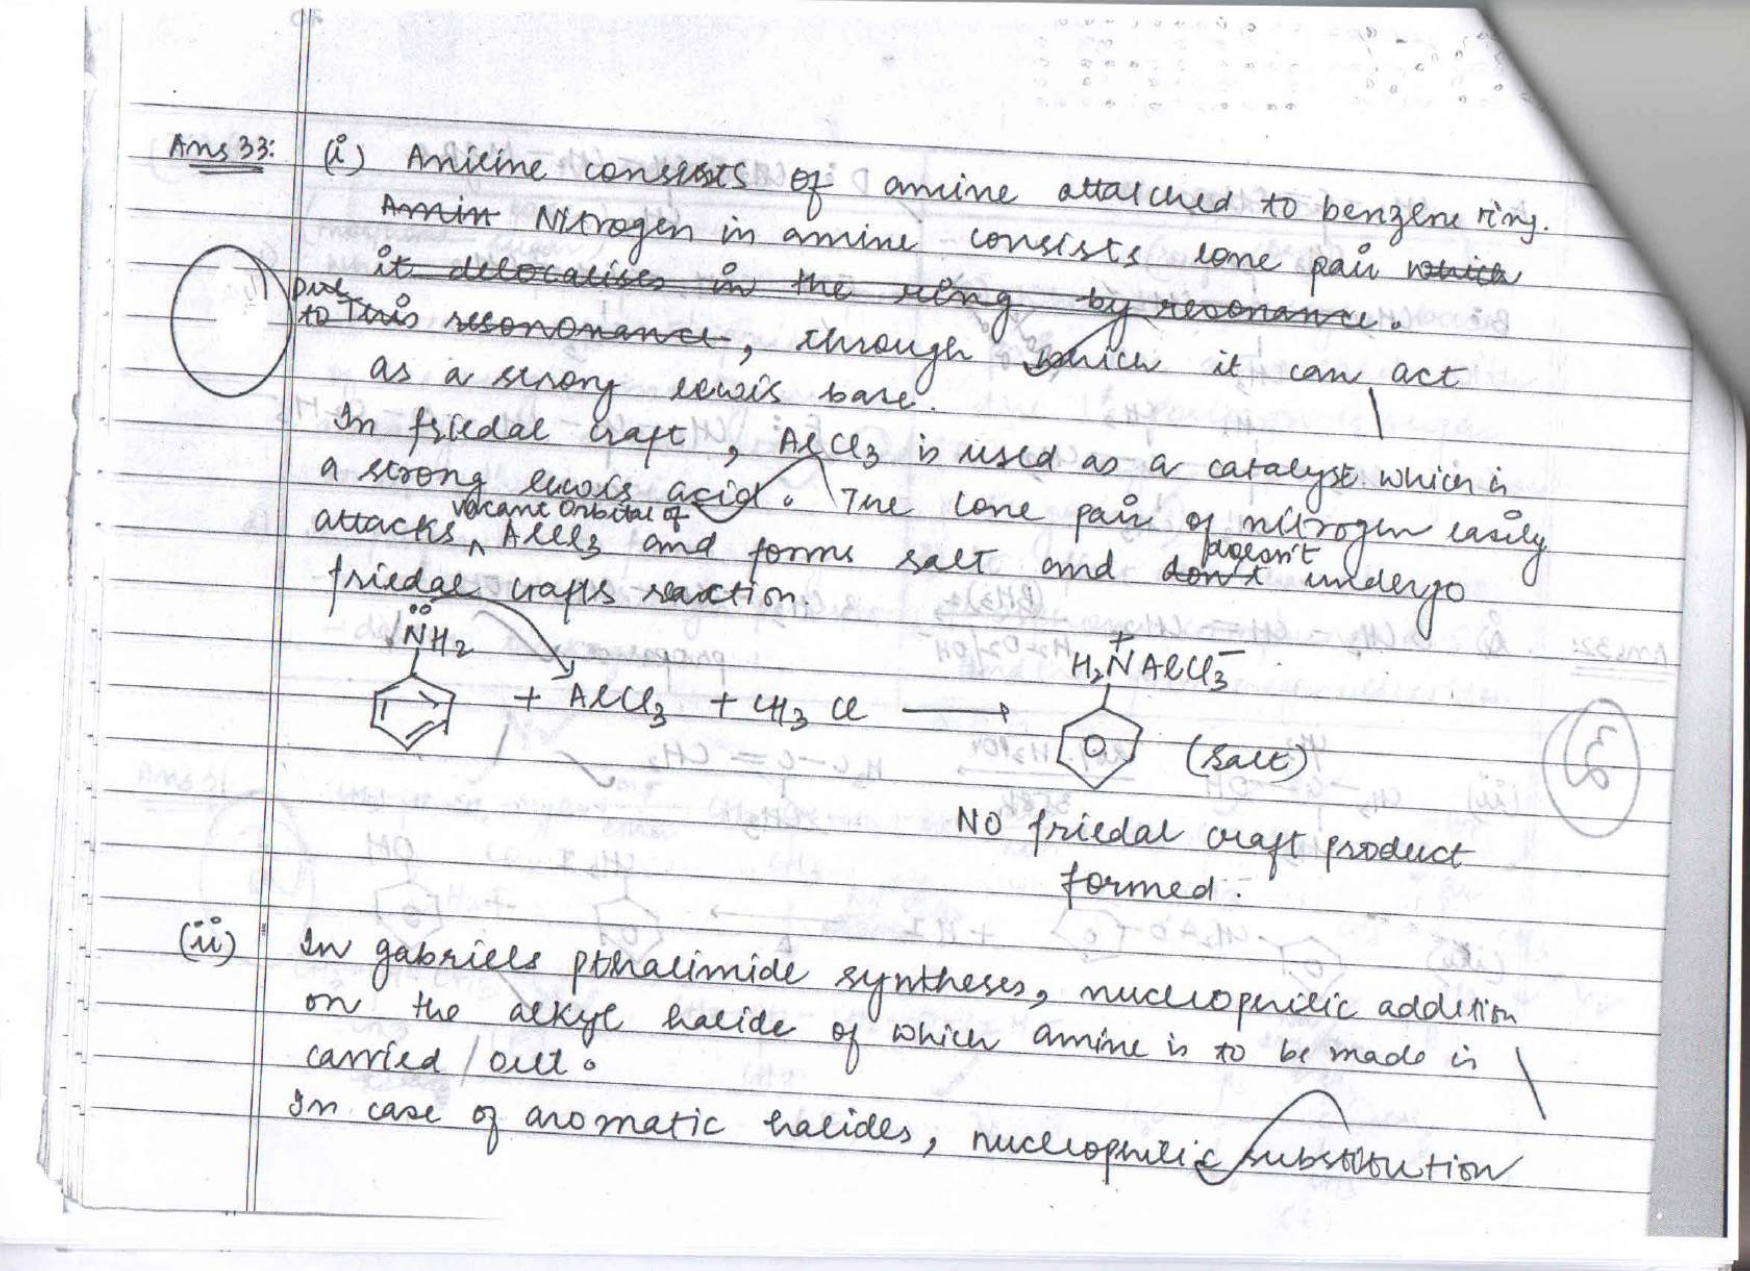 Ans 33: (i) Aniline consists of amine attatched to benzene ring.
Amin Nitrogen in amine consists lone pair which
it delocalises in the ring by resonance.
Due to This resononance, through which it can act
as a strong lewis base.
In friedal craft, AlCl3 is used as a catalyst which is
a strong lewis acid. The lone pair of nitrogen easily
attacks vacant orbital of AlCl3 and forms salt and don't doesn't undergo
friedal crafts reaction.
NH2 + AlCl3 + CH3 Cl → H2N+AlCl3- (salt)
No friedal craft product
formed.
(ii) In gabriels pthalimide syntheses, nucleophilic addition
on the alkyl halide of which amine is to be made is
carried out.
In case of aromatic halides, nucleophilic substitution
3